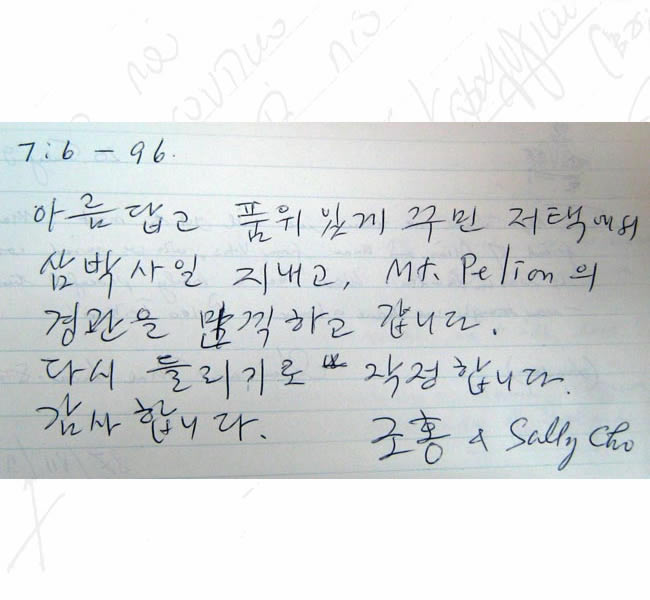 7:6 - 96.
아름답고 품위 있게 꾸민 저택에서
삼박사일 지내고, Mt. Pelion의
경관을 만끽하고 갑니다.
다시 들리기로 작정합니다.
감사합니다.
조홍 & Sally Cho